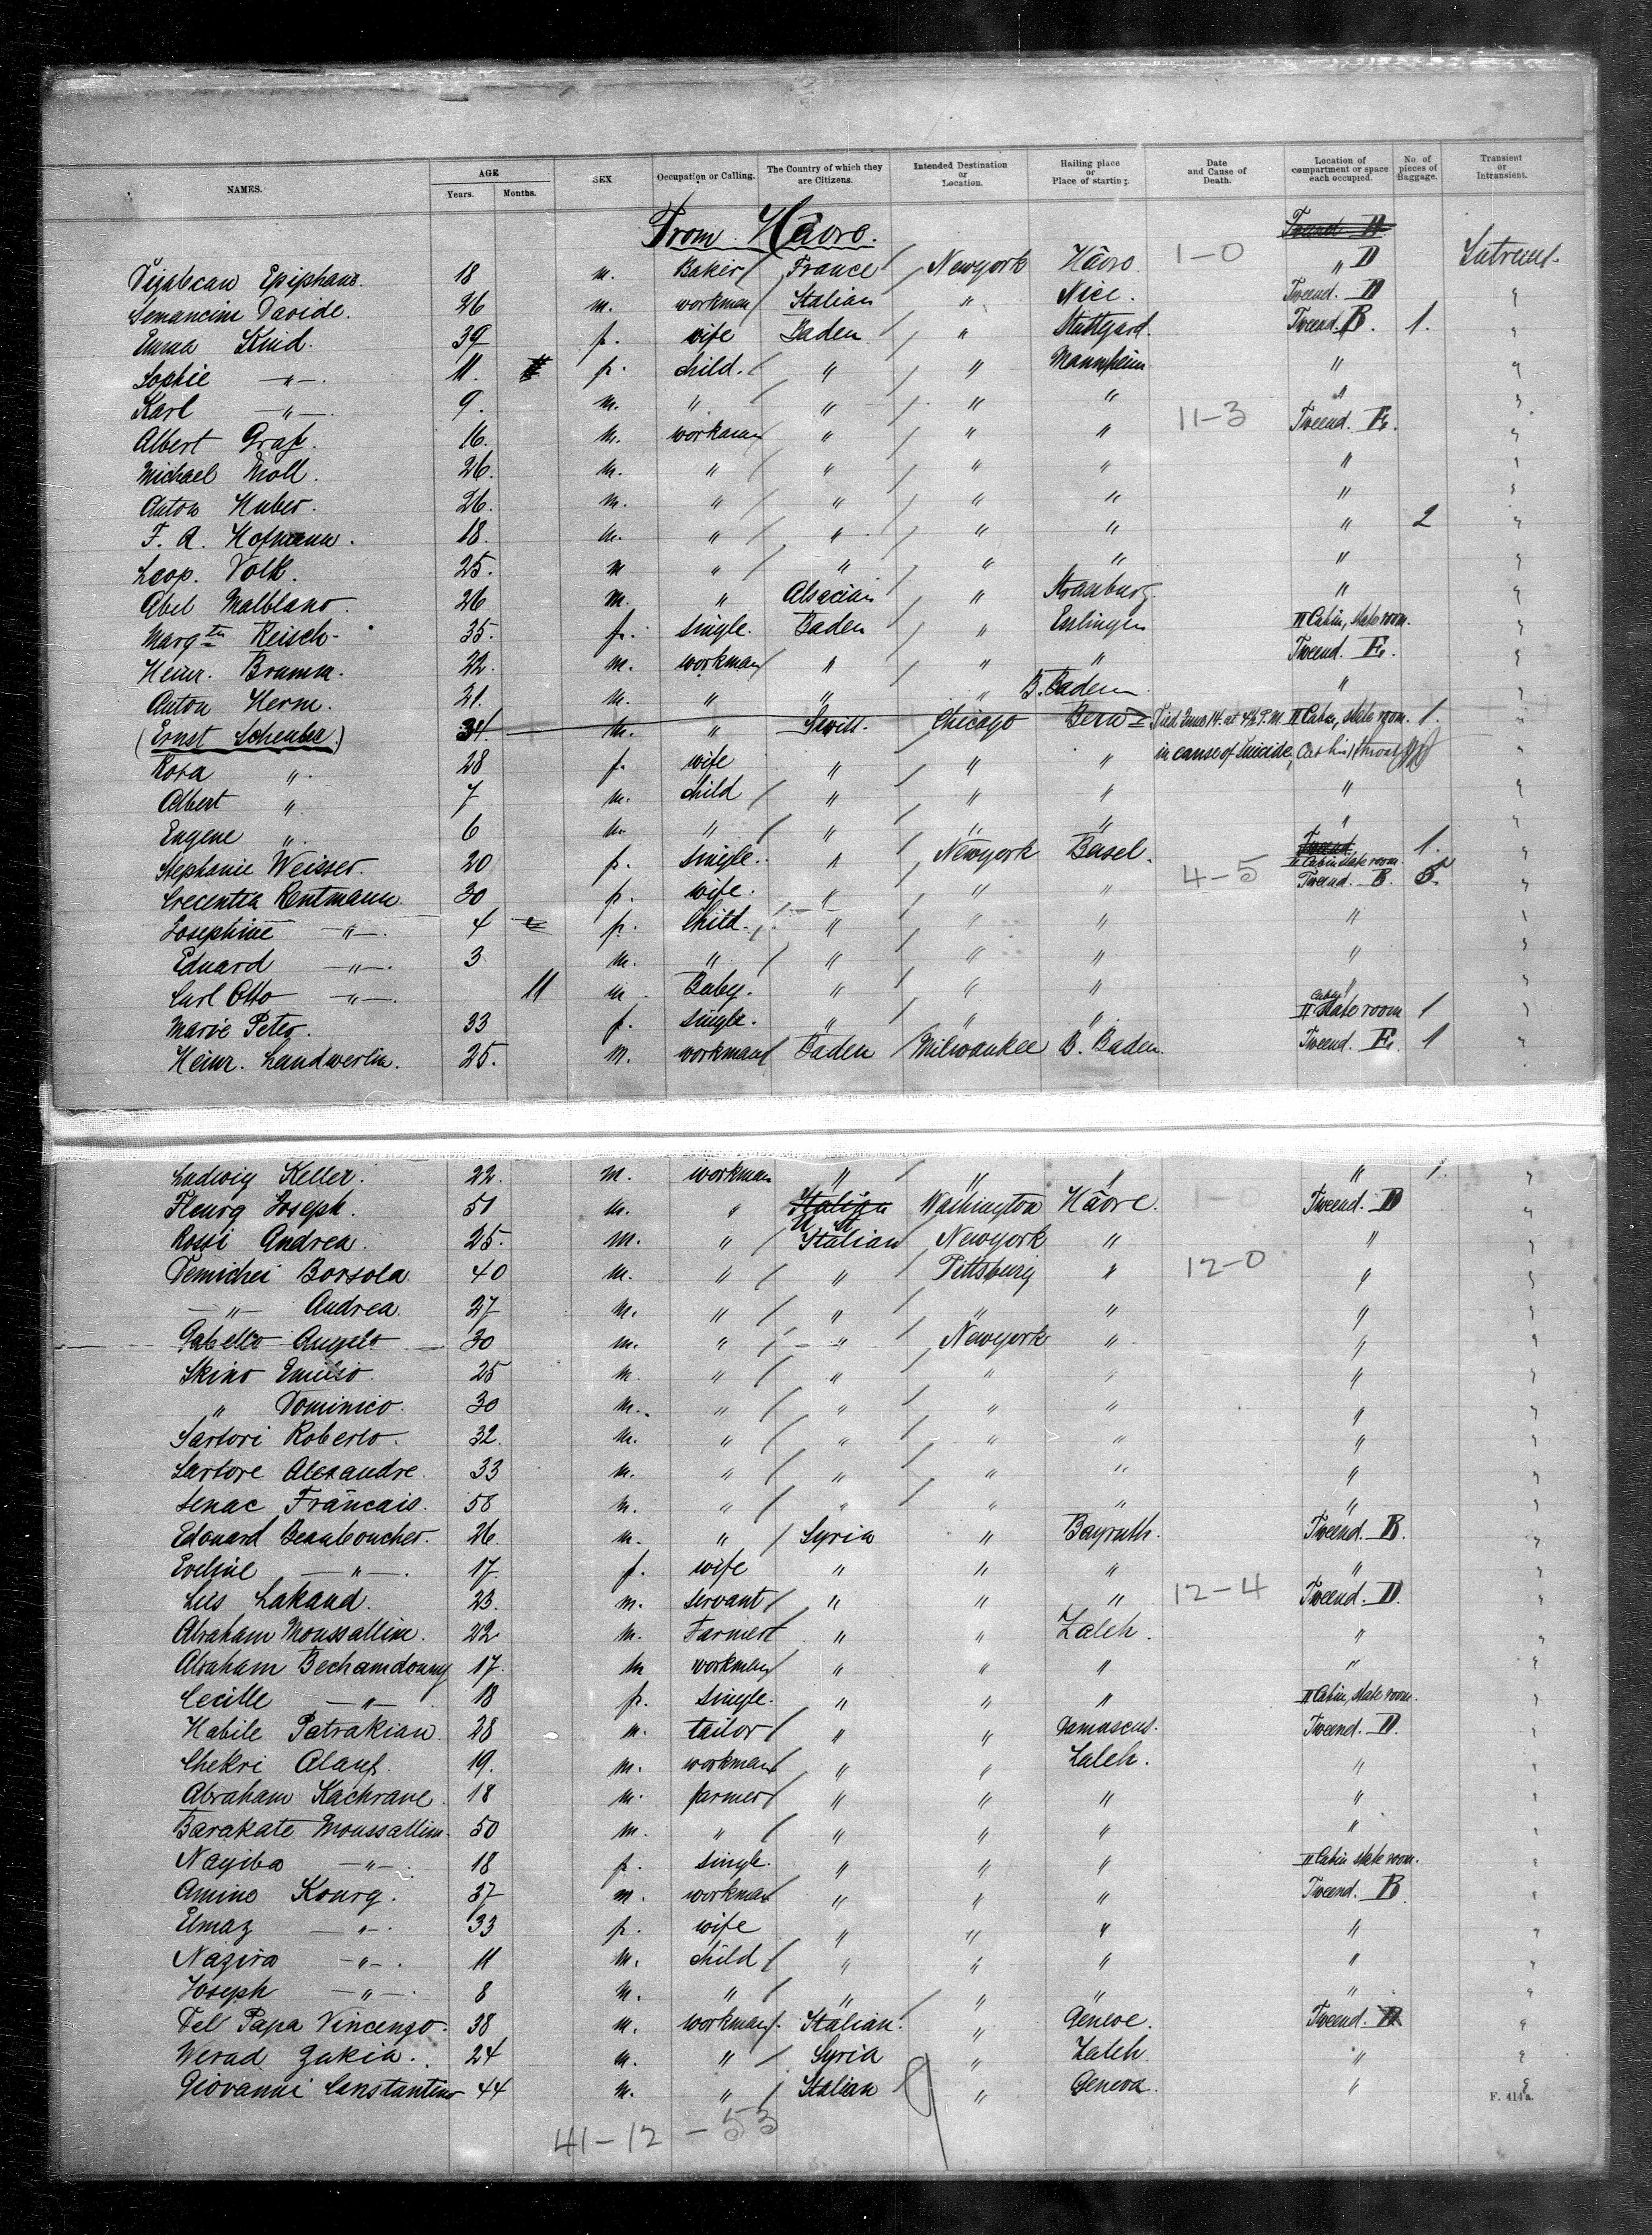 NAMES. AGE Years. Months. SEX Occupation or Calling. The Country of which they are Citizens. Intended Destination or Location. Hailing place or Place of starting. Date and Cause of Death. Location of compartment or space each occupied. No. of pieces of Baggage. Transient or Intransient.
From Hâvre.
Epiphane. 18 m. Baker / France / Newyork Hâvre 1-0 " D
Davide. 26 m. workman / Italian " Nice. Tweend. D "
Emma Kind. 39 f. wife Baden / " Stuttgard. Tweend. B. 1. "
Sophie -"-. 11. f. child. / " / " Mannheim " "
Karl -"-. 9. m. " " / " " " "
Albert Graf. 16. m. workman " / " " 11-3 Tweend. E. "
Michael Moll. 26. m. " / " / " " " "
Anton Huber. 26. m. " / " / " " " "
F. A. Hofmann. 18. m. " / " / " " " 2 "
Leop. Volk. 25. m " / " / " " " "
Abel Malblanc. 26 m. " Alsacian " Strassburg. " "
Margtn Reisch- 35. f. single. Baden / " Esslingen II Cabin, state room. "
Heinr. Bramm. 22. m. workman / " / " " Tweend. E. "
Anton Herm. 21. m. " " " B. Baden. " "
(Ernst Scheuber.) 34 m. " Switt. Chicago Bern Died June 14. at 4½ P.M. II Cabin, state room. 1. "
Rosa " 28 f. wife " " " in cause of Suicide, Cut his throat "
Albert " 7 m. child / " / " " " "
Eugene " 6 m. " / " / " " " "
Stephanie Weisser. 20 f. single. " / Newyork Basel. II Cabin state room. 1. "
Crecentia Rentmann 30 f. wife. " / " " 4-5 Tweend. B. 5. "
Josephine -"-. 4 f. Child. / " / " " " "
Eduard -"-. 3 m. " / " / " " " "
Carl Otto -"-. 11 m. Baby. " / " " " "
Marie Peter. 33 f. single. " " " II Cabin state room 1 "
Heinr. Landwerlin. 25. m. workman / Baden / Milwaukee B. Baden. Tweend. E. 1 "
Ludwig Keller. 22. m. workman " / " " " 1. "
Fleurg Joseph. 51 m. " Italian U St Washington Hâvre. Tweend. D "
Rossi Andrea. 25. m. " / Italian / Newyork " " "
Demichei Borsola 40 m. " / " Pittsburg " 12-0 " "
-"- Andrea. 27 m. " / " / " " " "
Gabello Angelo 30 m. " / " / Newyork " " "
Skino Emilio. 25 m. " / " / " " " "
" Dominico. 30 m. " / " / " " " "
Sartori Roberto. 32. m. " / " / " " " "
Sartore Alexandre. 33 m. " / " / " " " "
Senac Francais. 58 m. " / " / " " " "
Edouard Beauboucher. 26. m. " / Syria " Bayruth. Tweend. B. "
Eveline -"-. 17. f. wife " " " " "
Luis Lakaud. 23. m. servant / " " " 12-4 Tweend. D. "
Abraham Moussallim. 22 m. Farmer " " Zaleh. " "
Abraham Bechamdouny 17. m workman " " " " "
Cecille -"- 18 f. single. " " " II Cabin, state room. "
Habile Patrakian. 28 m. tailor / " " Damascus. Tweend. D. "
Chekri Alauf. 19. m. workman " " Zaleh. " "
Abraham Kachrane. 18 m. farmer / " " " " "
Barakate Moussallim. 50 m. " / " " " " "
Nayiba -"-. 18 f. single. " " " II Cabin state room. "
Amino Kourg. 37 m. workman " " " Tweend. B "
Elmaz -"-. 33 f. wife " " " " "
Nazira -"-. 11 m. child / " " " " "
Joseph -"-. 8 m. " / " / " " " "
Del Papa Vincenzo. 38 m. workman / Italian. / " Geneve. Tweend. D "
Werad Zakia. 24 m. " / Syria " Zaleh. " "
Giovanni Constantino 44 m. " / Italian " Geneva. " "
F. 414a.
41-12-53